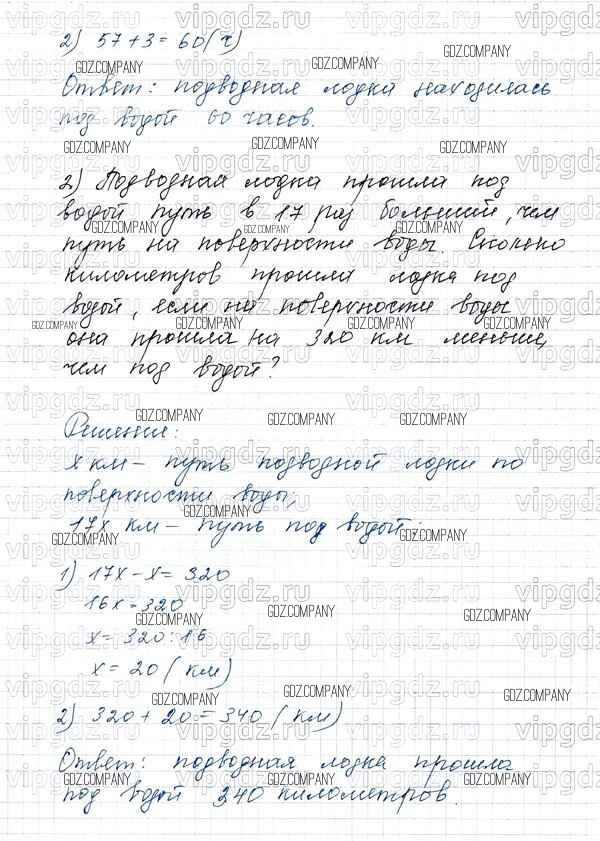 2) 57 + 3 = 60 (ч)
Ответ: подводная лодка находилась
под водой 60 часов.
2) Подводная лодка прошла под
водой путь в 17 раз больший, чем
путь на поверхности воды. Сколько
километров прошла лодка под
водой, если на поверхности воды
она прошла на 320 км меньше,
чем под водой?
Решение:
x км – путь подводной лодки по
поверхности воды;
17x км – путь под водой;
1) 17x – x = 320
16x = 320
x = 320 : 16
x = 20 (км)
2) 320 + 20 = 340 (км)
Ответ: подводная лодка прошла
под водой 340 километров.
vipgdz.ru
GDZ.COMPANY